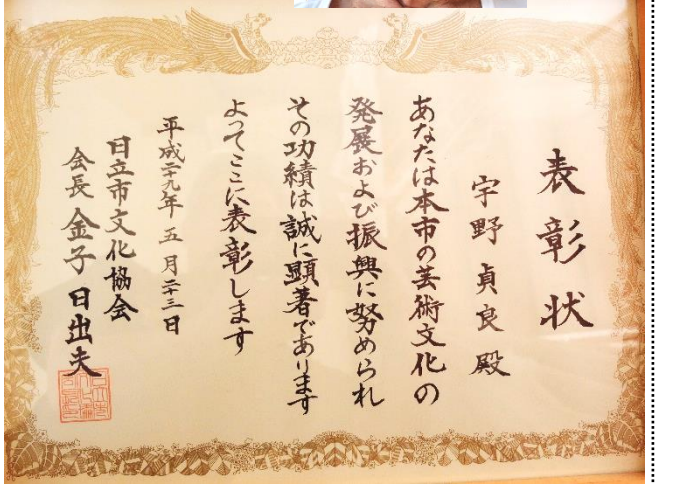 表彰状
宇野貞良殿
あなたは本市の芸術文化の
発展および振興に努められ
その功績は誠に顕著であります
よってここに表彰します
平成二十九年五月二十三日
日立市文化協会
会長金子日出夫